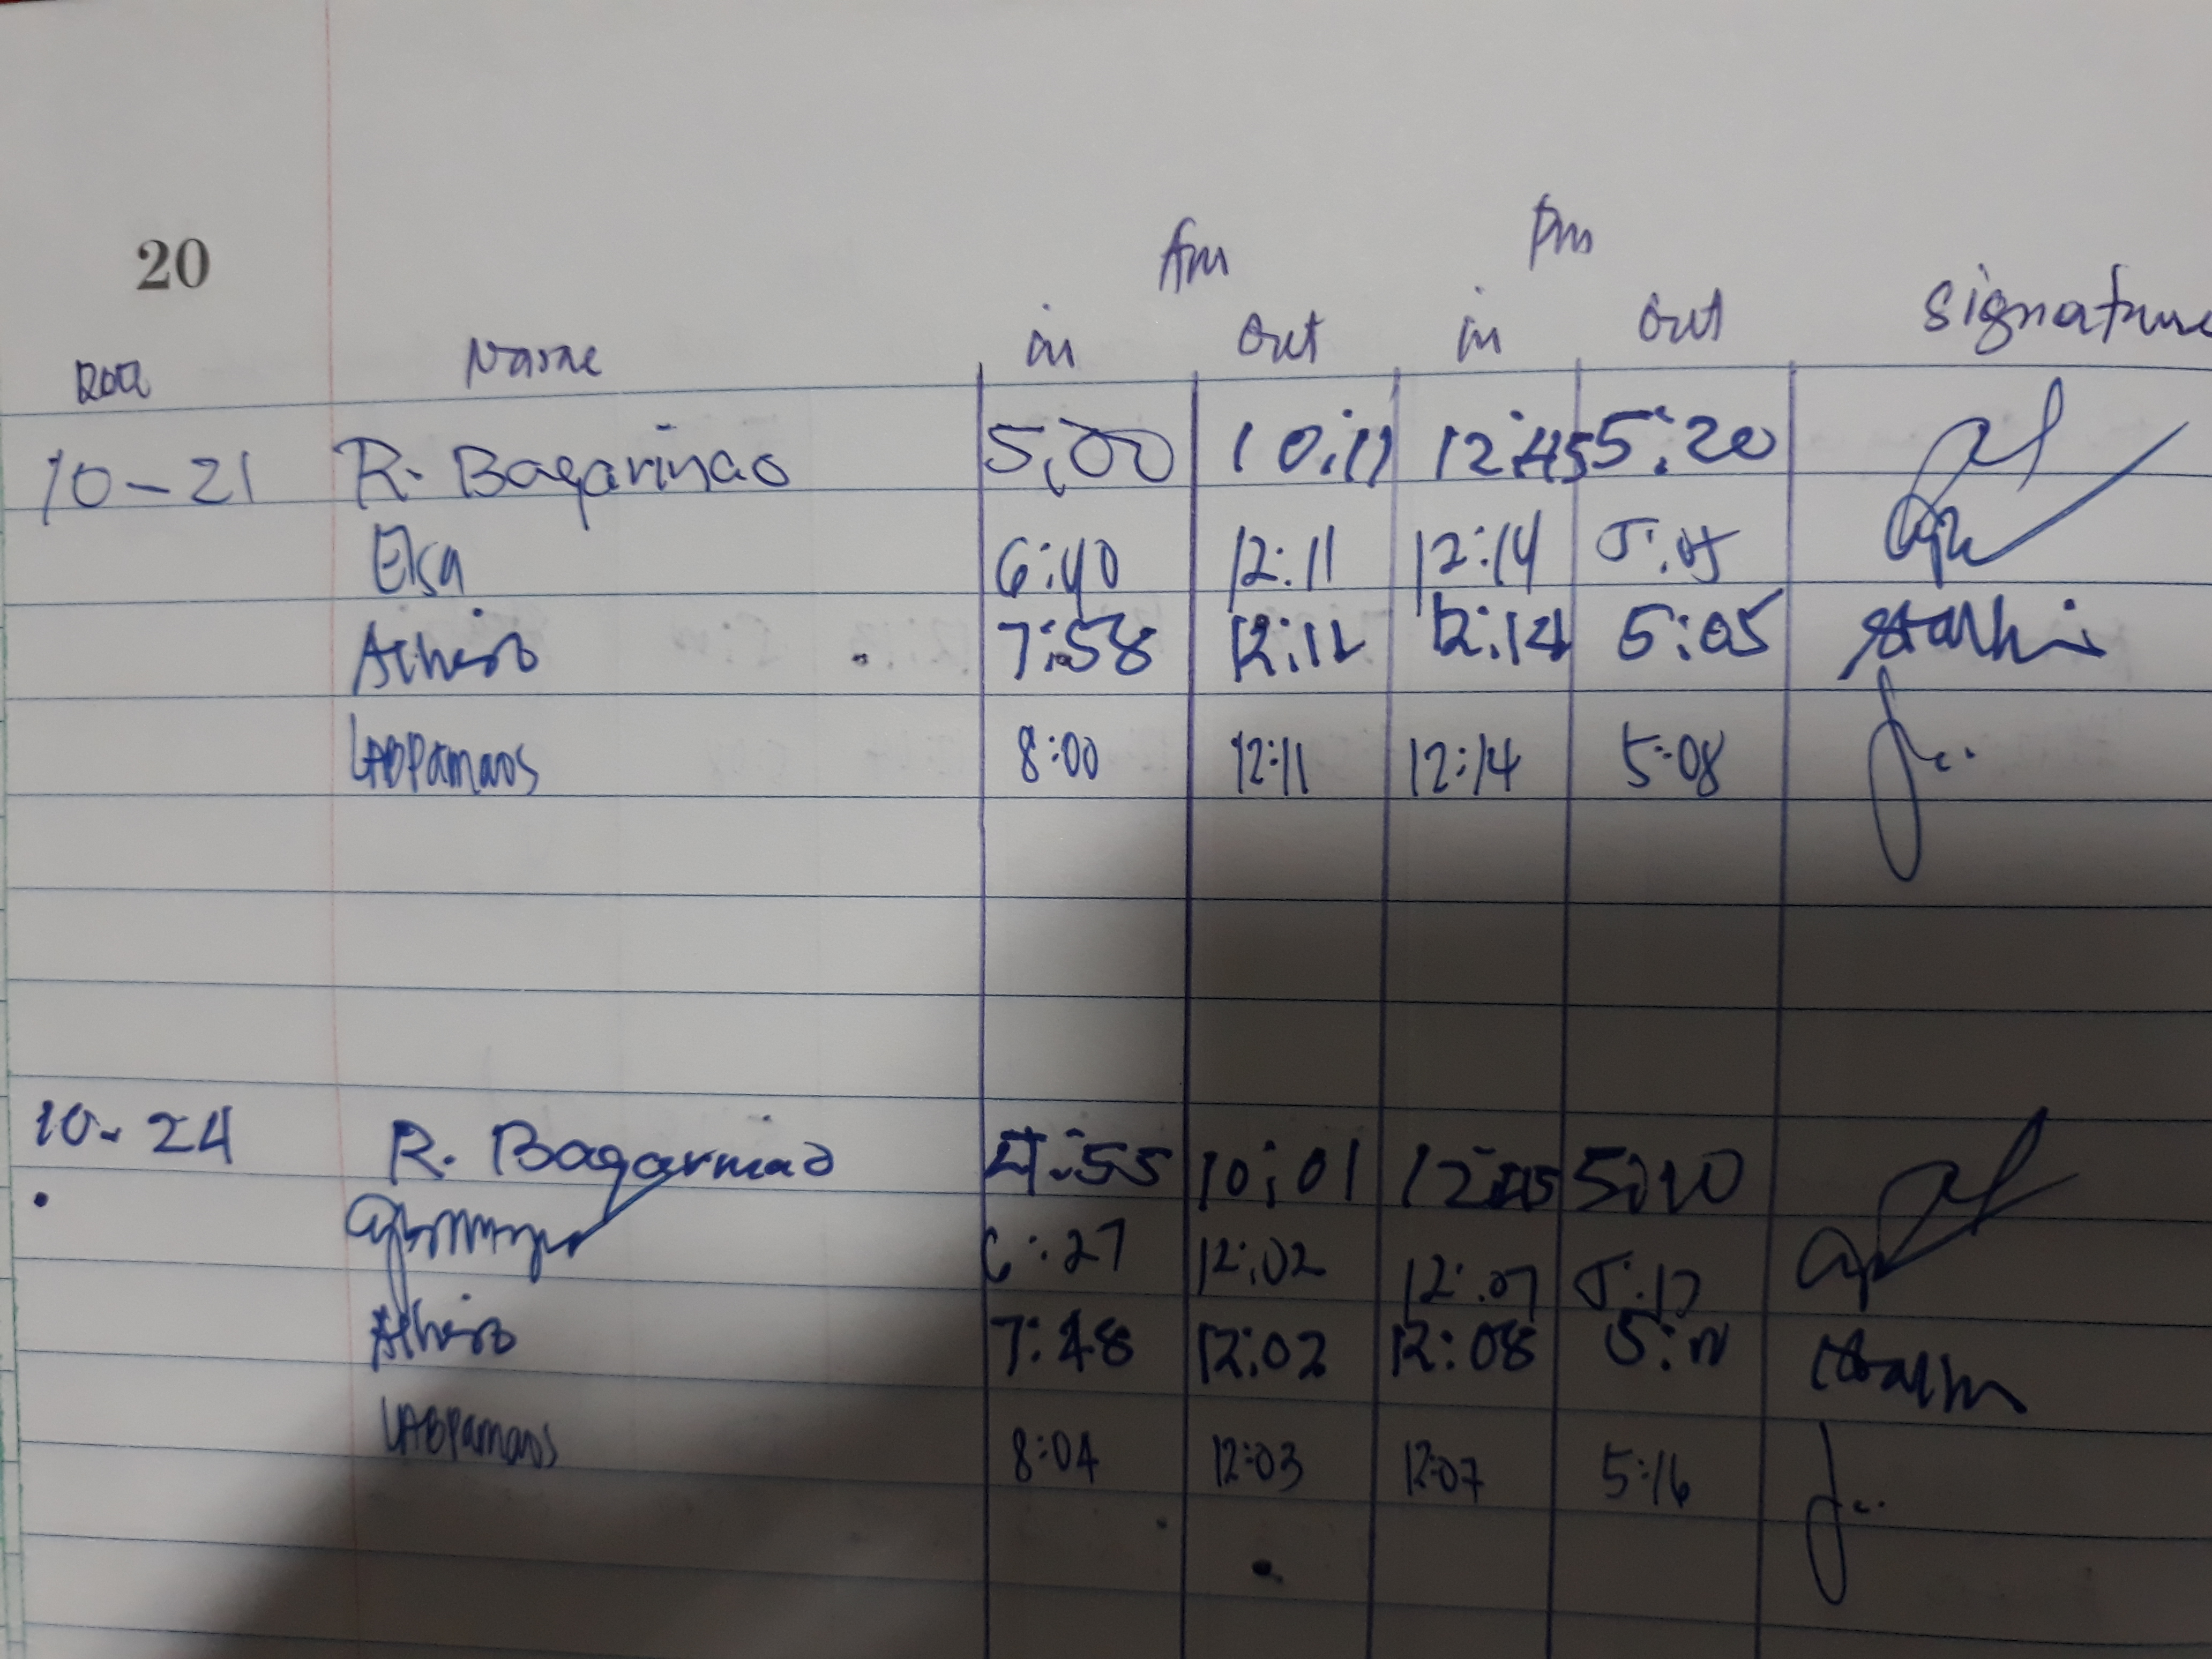 20
Am Pm
Name in out in out Signature
10-21 R. Bagarinao 5:00 10:11 12:45 5:20
Elsa 6:40 12:11 12:14 5:05
7:58 12:12 12:14 5:05
LABPamaos 8:00 12:11 12:14 5:08
10-24 R. Bagarinao 4:55 10:01 12:45 5:10
6:27 12:02 12:07
7:48 12:02 12:08
LABPamaos 8:04 12:03 12:07 5:16